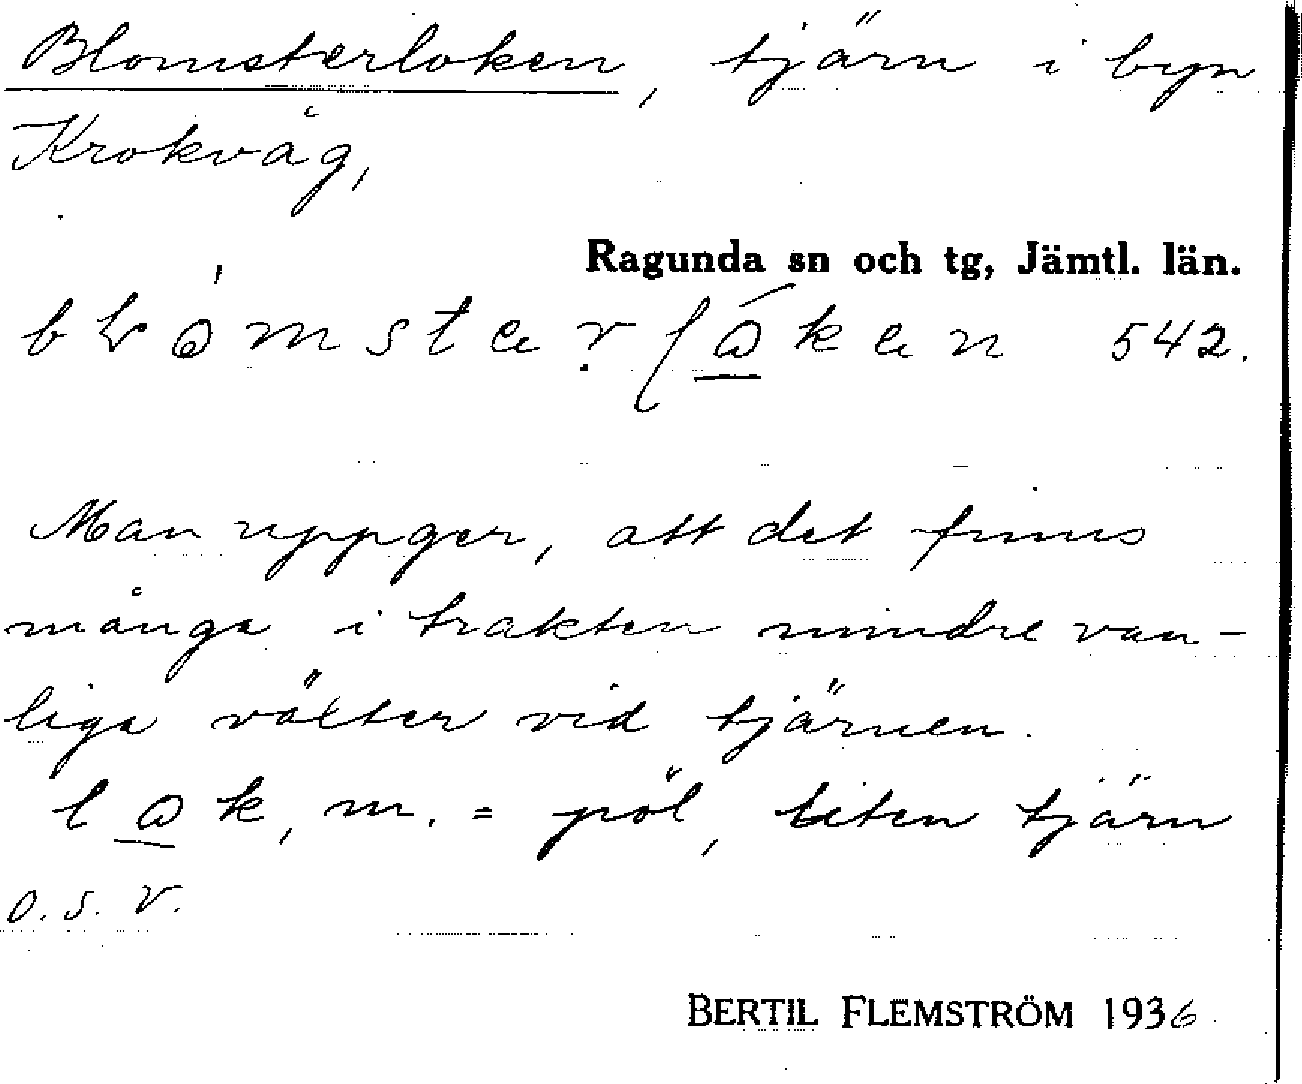 Blomsterloken, tjärn i byn
Krokvåg,
Ragunda sn och tg, Jämtl. län.
542.
Man uppger, att det finns
många i trakten mindre van-
liga växter vid tjärnen.
lok, m. = pöl, liten tjärn
o.s.v.
BERTIL FLEMSTRÖM 1936